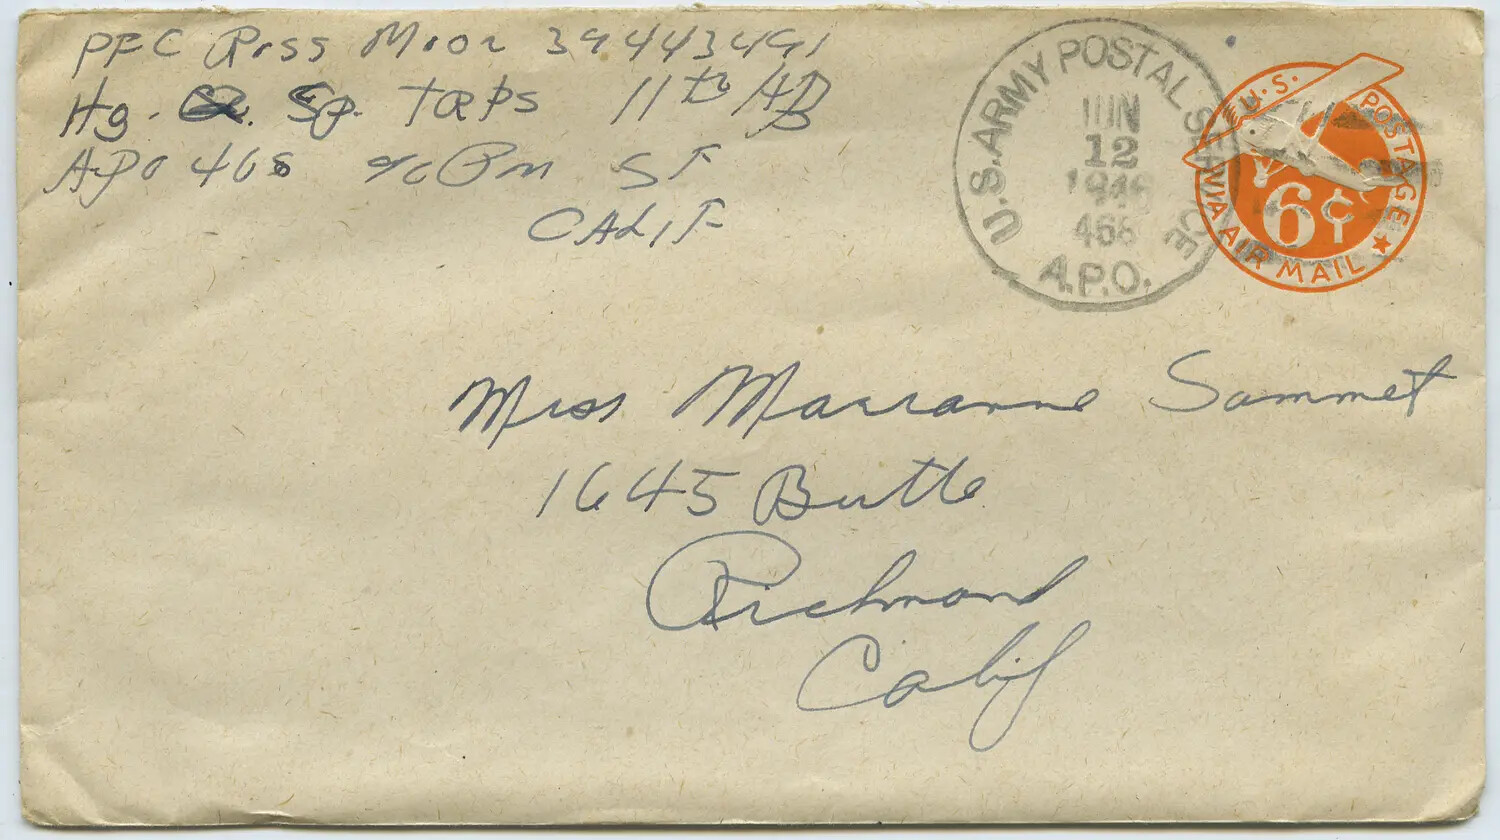 PFC Ross Moor 39443491
Hq. Sp. Troops 11th AB
APO 468 c/o PM SF
CALIF
U.S. ARMY POSTAL SERVICE
JUN
12
1946
468
A.P.O.
U.S. POSTAGE
6¢
VIA AIR MAIL
Miss Marianne Sammet
1645 Butte
Richmond
Calif